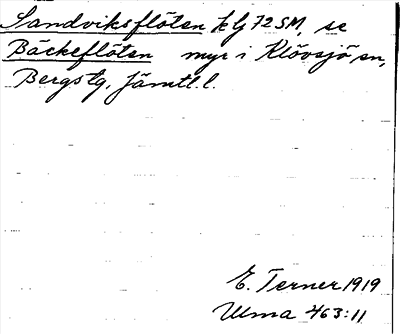 Sandviksflöten klj 72 SM, se
Bäckeflöten myr i Klövsjö sn,
Bergs tg, Jämtl. l.
E. Terner 1919
Ulma 463:11